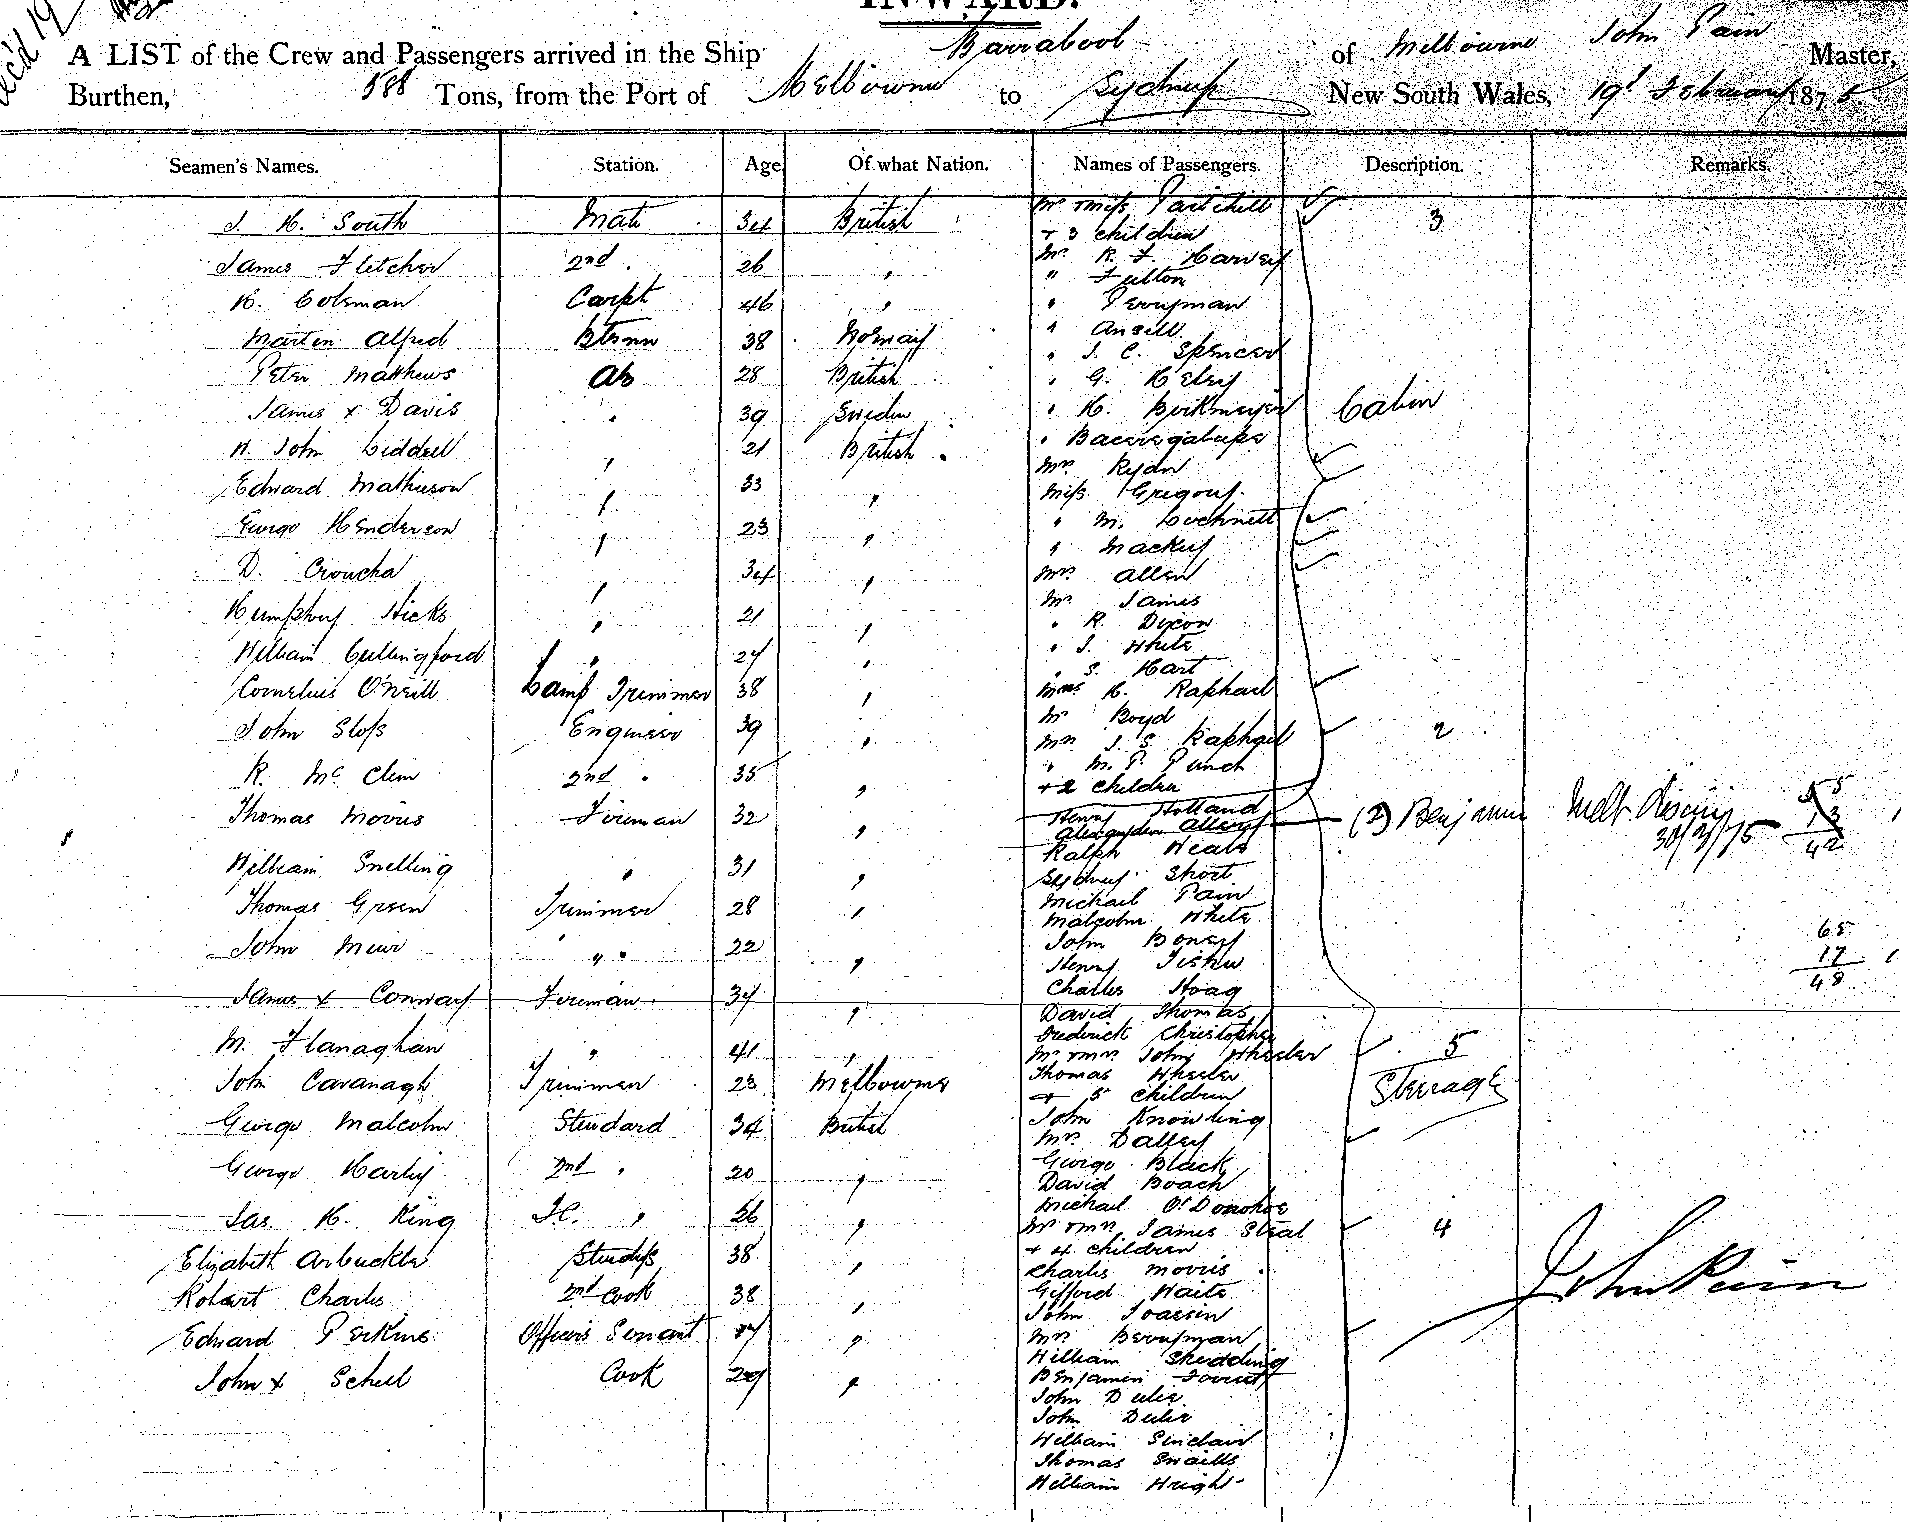 INWARD.
A LIST of the Crew and Passengers arrived in the Ship Barrabool of Melbourne John Pain Master,
Burthen, 588 Tons, from the Port of Melbourne to Sydney New South Wales, 19th February 1875
Seamen's Names. Station. Age Of what Nation. Names of Passengers. Description. Remarks.
J. H. South Mate 34 British
James Fletcher 2nd 26 "
H. Colsman Carpt 46 "
Martin Alfred 38 Norway
Peter Matthews AB 28 British
James x Davis " 39 Sweden
H. John Liddell " 21 British
Edward Mathieson " 33 "
George Henderson " 23 "
D. Croucha " 34 "
Humphrey Hicks " 21 "
William Cullingford " 27 "
Cornelius O'Neill Lamp Trimmer 38 "
John Sloss Engineer 39 "
R. Mc Clim 2nd " 35 "
Thomas Morris Fireman 32 "
William Snelling " 31 "
Thomas Green Trimmer 28 "
John Muir " " 22 "
James x Conway Fireman 37 "
M. Flanaghan " 41 "
John Cavanagh Trimmer 23 Melbourne
George Malcolm Steudard 34 British
George Harley 2nd " 20 "
Jas H. King " 26 "
Elizabeth Arbuckle Studess 38 "
Robert Charles 2nd Cook 38 "
Edward Perkins Officers Servant 17 "
John x Schell Cook 29 "
Mr & Miss
+ 3 children 3
Mr R. J. Harvey
" Fulton
" Perryman
" Ansell
" J. C. Spencer
" G. Kelsy
" H. Berkmeyer Cabin
Mrs Ryan
Miss Gregory
" M. Locknett
" Mackey
Mrs Allen
Mr James
" R. Dixon
" J. White
" S. Hart
H. Raphael
Mr Boyd
Mrs J. S. Raphael 2
" M. P. Punch
+ 2 children
Henry Holland
(2) Benjamin
30/3/75
55
13
42
Ralph Neale
Sydney Short
Michael Pain
Malcolm White
John Boney
Henry Fisher
Charles Hoag
David Thomas
Frederick Christopher
65
17
48
Mr & Mrs John Wheeler 5
Thomas Wheeler
+ 5 children Steerage
John Knowling
Mrs Dalley
George Black
David Boach
Michael O'Donohoe
Mr & Mrs James Steal 4
+ 4 children
Charles Morris
Gifford Waite
John Joassin
Mrs Berryman
William Skedding
Benjamin Forrest
John Duler
John Duler
William Sinclair
Thomas Snaills
William Wright
John Pain